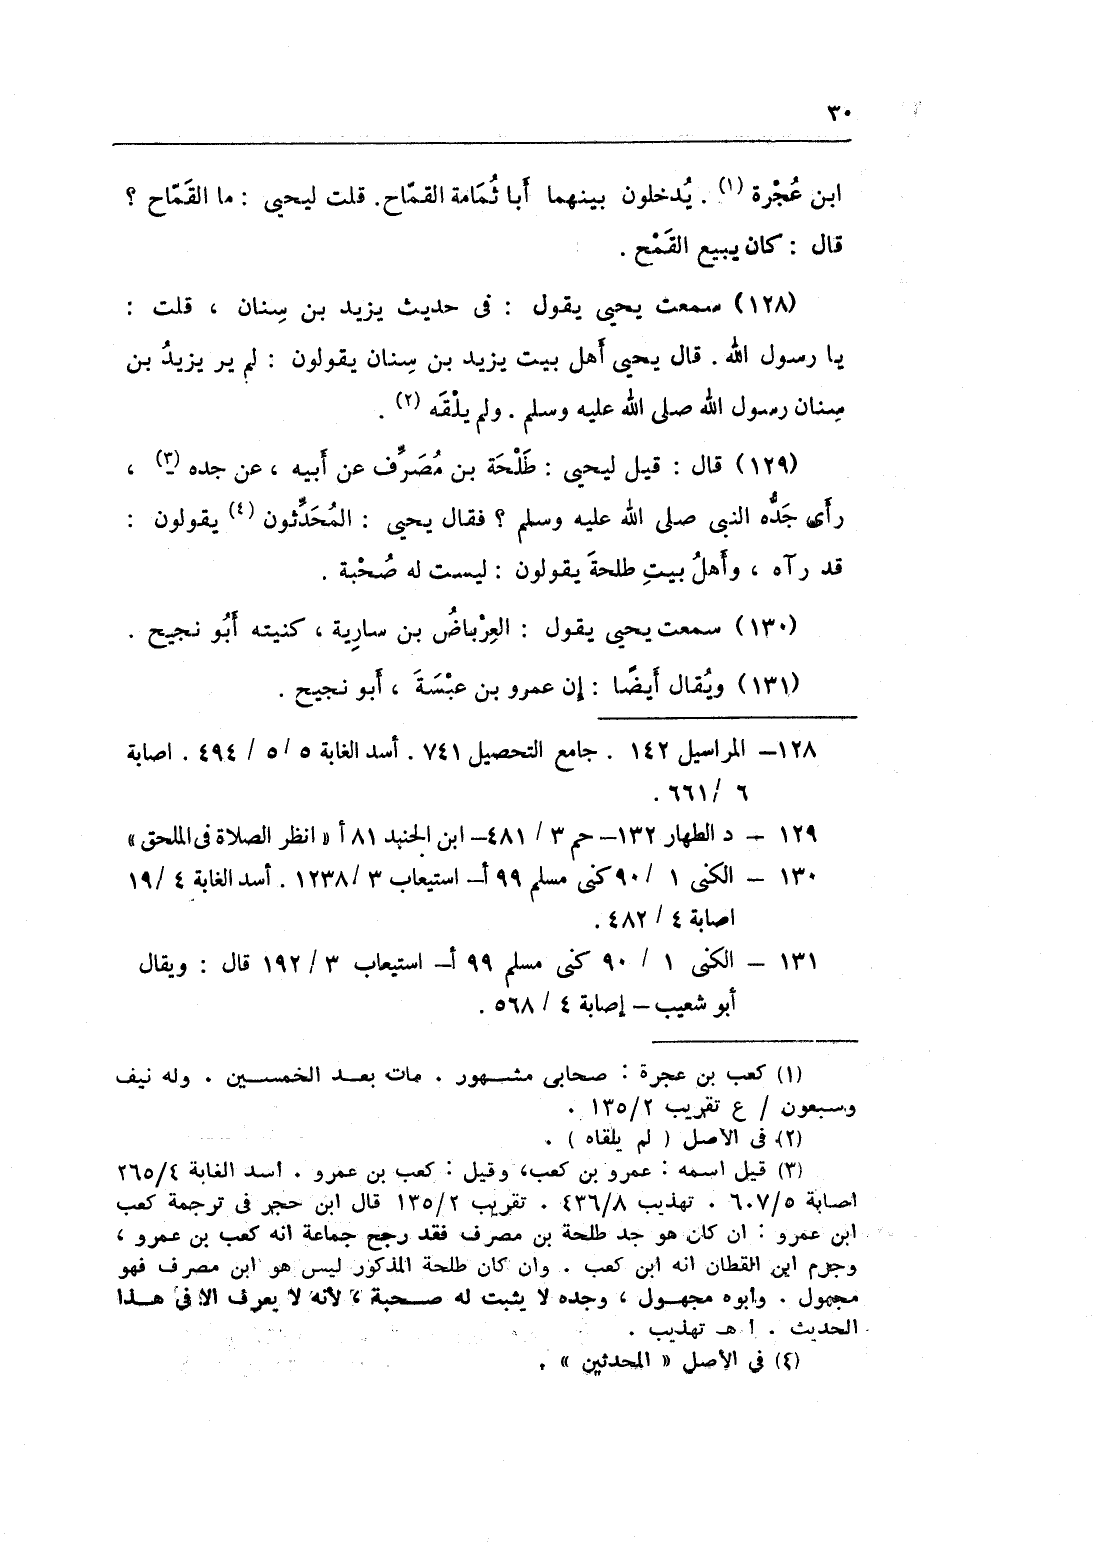 ٣٠
ابن عُجْرة (١) . يُدخلون بينهما أَبا ثُمَامة القمّاح. قلت ليحيى : ما القَمّاح ؟
قال : كان يبيع القَمْح .
(١٢٨) سمعت يحيى يقول : فى حديث يزيد بن سِنان ، قلت :
يا رسول الله . قال يحيى أَهل بيت يزيد بن سِنان يقولون : لم ير يزيدُ بن
سِنان رسول الله صلى الله عليه وسلم . ولم يلْقَه (٢) .
(١٢٩) قال : قيل ليحيى : طَلْحَة بن مُصَرِّف عن أَبيه ، عن جده (٣) ،
رأَى جَدُّه النبى صلى الله عليه وسلم ؟ فقال يحيى : المُحَدِّثون (٤) يقولون :
قد رآه ، وأَهلُ بيتِ طلحةَ يقولون : ليست له صُحْبة .
(١٣٠) سمعت يحيى يقول : العِرْباضُ بن سارِية ، كنيته أَبُو نجيح .
(١٣١) ويُقال أَيضًا : إن عمرو بن عبْسَةَ ، أَبو نجيح .
١٢٨– المراسيل ١٤٢ . جامع التحصيل ٧٤١ . أسد الغابة ٥ / ٥ / ٤٩٤ . اصابة
٦ / ٦٦١ .
١٢٩ – د الطهار ١٣٢– حم ٣ / ٤٨١– ابن الجنيد ٨١ أ « انظر الصلاة فى الملحق »
١٣٠ – الكنى ١ / ٩٠ كنى مسلم ٩٩ أ– استيعاب ٣ / ١٢٣٨ . أسد الغابة ٤ / ١٩
اصابة ٤ / ٤٨٢ .
١٣١ – الكنى ١ / ٩٠ كنى مسلم ٩٩ أ– استيعاب ٣ / ١٩٢ قال : ويقال
أبو شعيب – إصابة ٤ / ٥٦٨ .
(١) كعب بن عجرة : صحابى مشهور . مات بعد الخمسين . وله نيف
وسبعون / ع تقريب ١٣٥/٢ .
(٢) فى الأصل ( لم يلقاه ) .
(٣) قيل اسمه : عمرو بن كعب، وقيل : كعب بن عمرو . اسد الغابة ٢٦٥/٤
اصابة ٦٠٧/٥ . تهذيب ٤٣٦/٨ . تقريب ١٣٥/٢ قال ابن حجر فى ترجمة كعب
ابن عمرو : ان كان هو جد طلحة بن مصرف فقد رجح جماعة انه كعب بن عمرو ،
وجزم ابن القطان انه ابن كعب . وان كان طلحة المذكور ليس هو ابن مصرف فهو
مجهول . وأبوه مجهول ، وجده لا يثبت له صحبة ، لأنه لا يعرف الا فى هذا
الحديث . ا هـ تهذيب .
(٤) فى الأصل « المحدثين » .